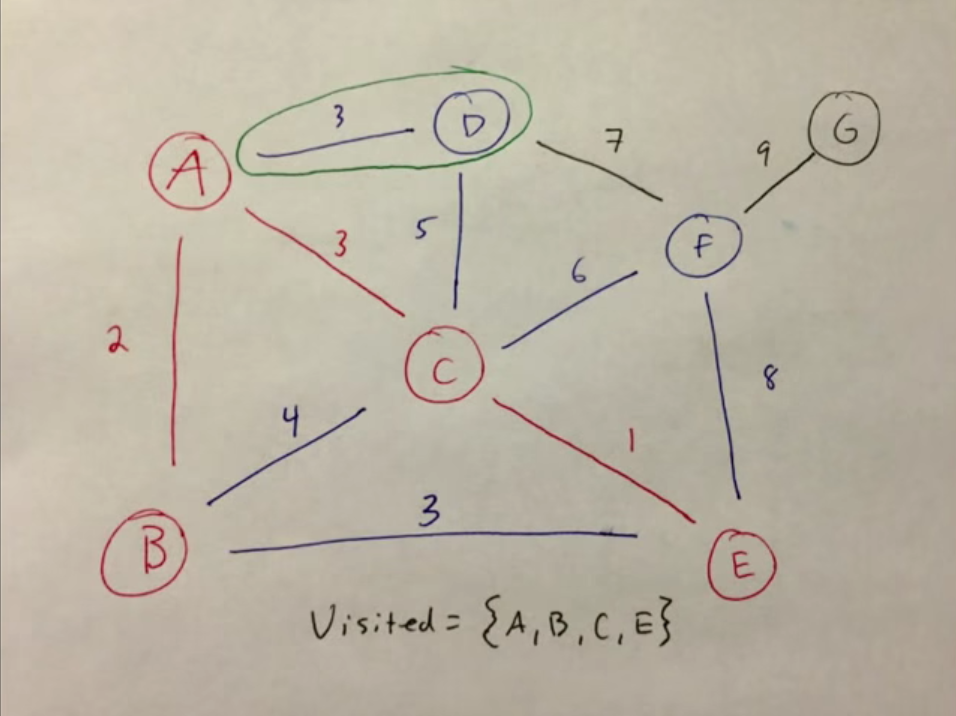 3
D
7
G
9
A
3
5
6
F
2
C
8
4
1
3
B
E
Visited = {A, B, C, E}